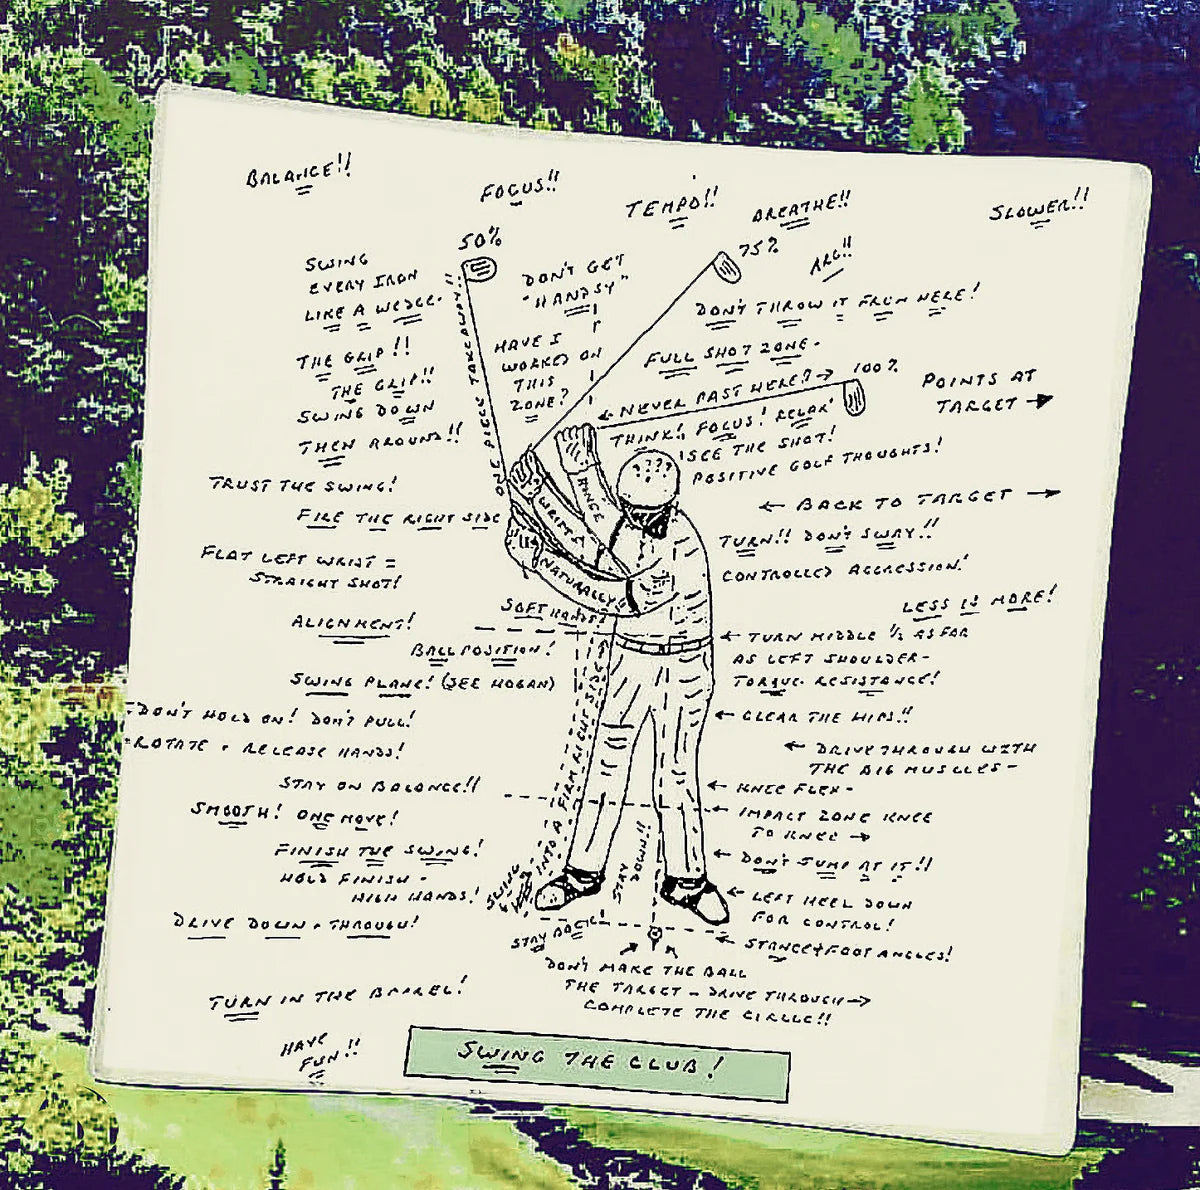 BALANCE!!
FOCUS!!
TEMPO!!
BREATHE!!
SLOWER!!
50%
75%
ARG!!
SWING
EVERY IRON
LIKE A WEDGE-
THE GRIP!!
THE GRIP!!
SWING DOWN
THEN AROUND!!
TRUST THE SWING!
FIRE THE RIGHT SIDE
FLAT LEFT WRIST =
STRAIGHT SHOT!
ALIGNMENT!
BALL POSITION!
SWING PLANE! (SEE HOGAN)
DON'T HOLD ON! DON'T PULL!
ROTATE + RELEASE HANDS!
STAY ON BALANCE!!
SMOOTH! ONE MOVE!
FINISH THE SWING!
HOLD FINISH -
HIGH HANDS!
DRIVE DOWN + THROUGH!
TURN IN THE BARREL!
HAVE
FUN!!
ONE PIECE TAKEAWAY!!
DON'T GET
"HANDSY"
HAVE I
WORKED ON
THIS
ZONE?
DON'T THROW IT FROM HERE!
FULL SHOT ZONE-
← NEVER PAST HERE? →
100%
POINTS AT
TARGET →
THINK! FOCUS! RELAX!
SEE THE SHOT!
POSITIVE GOLF THOUGHTS!
???
HINGE
WRISTS
NATURALLY!!
SOFT HANDS!
← BACK TO TARGET →
TURN!! DON'T SWAY!!
CONTROLLED AGGRESSION!
LESS IS MORE!
← TURN MIDDLE 1/2 AS FAR
AS LEFT SHOULDER-
TORQUE-RESISTANCE!
← CLEAR THE HIPS!!
← DRIVE THROUGH WITH
THE BIG MUSCLES-
← KNEE FLEX-
← IMPACT ZONE KNEE
TO KNEE →
← DON'T JUMP AT IT!!
← LEFT HEEL DOWN
FOR CONTROL!
← STANCE + FOOT ANGLES!
SWING
INTO A FIRM RIGHT SIDE
STAY
DOWN!!
STAY BACK!
DON'T MAKE THE BALL
THE TARGET - DRIVE THROUGH →
COMPLETE THE CIRCLE!!
SWING THE CLUB!